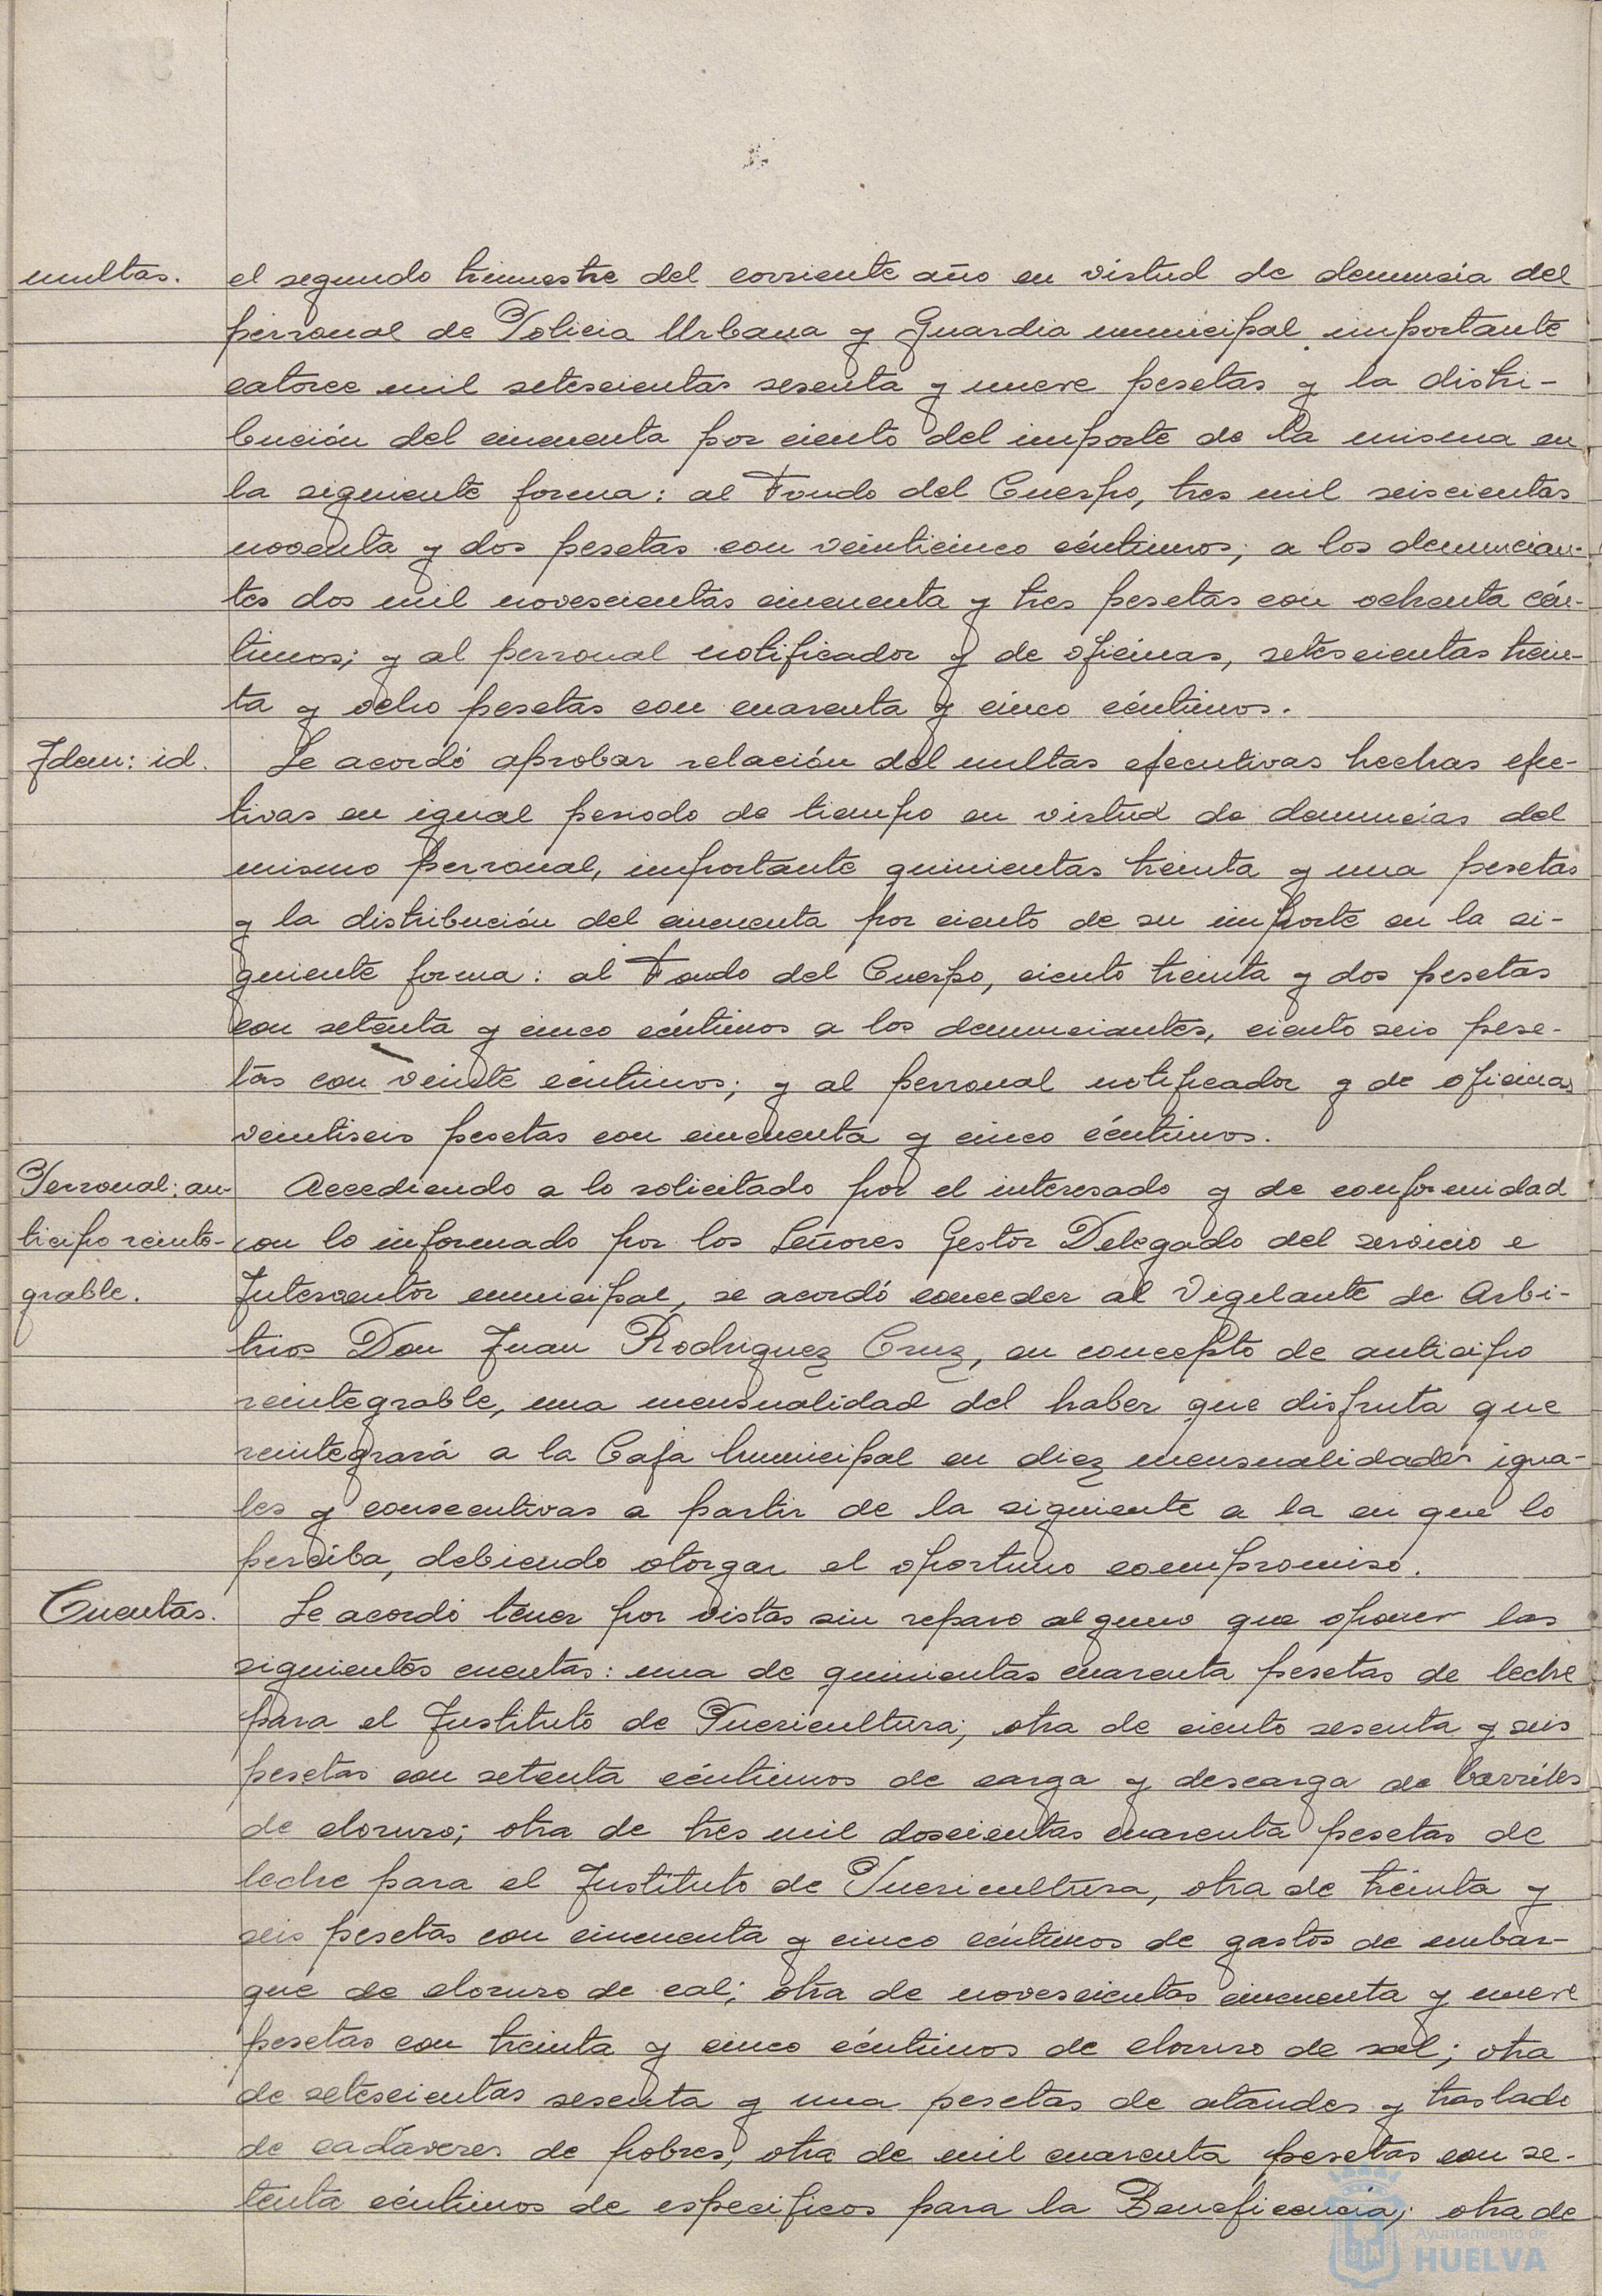 multas. el segundo trimestre del corriente año en virtud de denuncia del
personal de Policia Urbana y Guardia municipal importante
catorce mil setescientas sesenta y nueve pesetas y la distri-
bución del cincuenta por ciento del importe de la misma en
la siguiente forma: al Fondo del Cuerpo, tres mil seiscientas
noventa y dos pesetas con veinticinco céntimos; a los denuncian-
tes dos mil novescientas cincuenta y tres pesetas con ochenta cén-
timos; y al personal notificador y de oficinas, setescientas trein-
ta y ocho pesetas con cuarenta y cinco céntimos.
Idem: id. Se acordó aprobar relación del multas ejecutivas hechas efec-
tivas en igual periodo de tiempo en virtud de denuncias del
mismo personal, importante quinientas treinta y una pesetas
y la distribución del cincuenta por ciento de su importe en la si-
guiente forma: al Fondo del Cuerpo, ciento treinta y dos pesetas
con setenta y cinco céntimos a los denunciantes, ciento seis pese-
tas con veinte céntimos; y al personal notificador y de oficinas
veintiseis pesetas con cincuenta y cinco céntimos.
Personal: an- Accediendo a lo solicitado por el interesado y de conformidad
ticipo reinte- con lo informado por los Señores Gestor Delegado del servicio e
grable. Interventor municipal, se acordó conceder al Vigilante de Arbi-
trios Don Juan Rodriguez Cruz, en concepto de anticipo
reintegrable, una mensualidad del haber que disfruta que
reintegrará a la Caja municipal en diez mensualidades igua-
les y consecutivas a partir de la siguiente a la en que lo
perciba, debiendo otorgar el oportuno compromiso.
Cuentas. Se acordó tener por vistas sin reparo alguno que oponer las
siguientes cuentas: una de quinientas cuarenta pesetas de leche
para el Instituto de Puericultura; otra de ciento sesenta y seis
pesetas con setenta céntimos de carga y descarga de barriles
de cloruro; otra de tres mil doscientas cuarenta pesetas de
leche para el Instituto de Puericultura, otra de treinta y
seis pesetas con cincuenta y cinco céntimos de gastos de embar-
que de cloruro de cal; otra de novescientas cincuenta y nueve
pesetas con treinta y cinco céntimos de cloruro de sal; otra
de setescientas sesenta y una pesetas de ataudes y traslado
de cadáveres de pobres; otra de mil cuarenta pesetas con se-
tenta céntimos de especificos para la Beneficencia; otra de
Ayuntamiento de
HUELVA